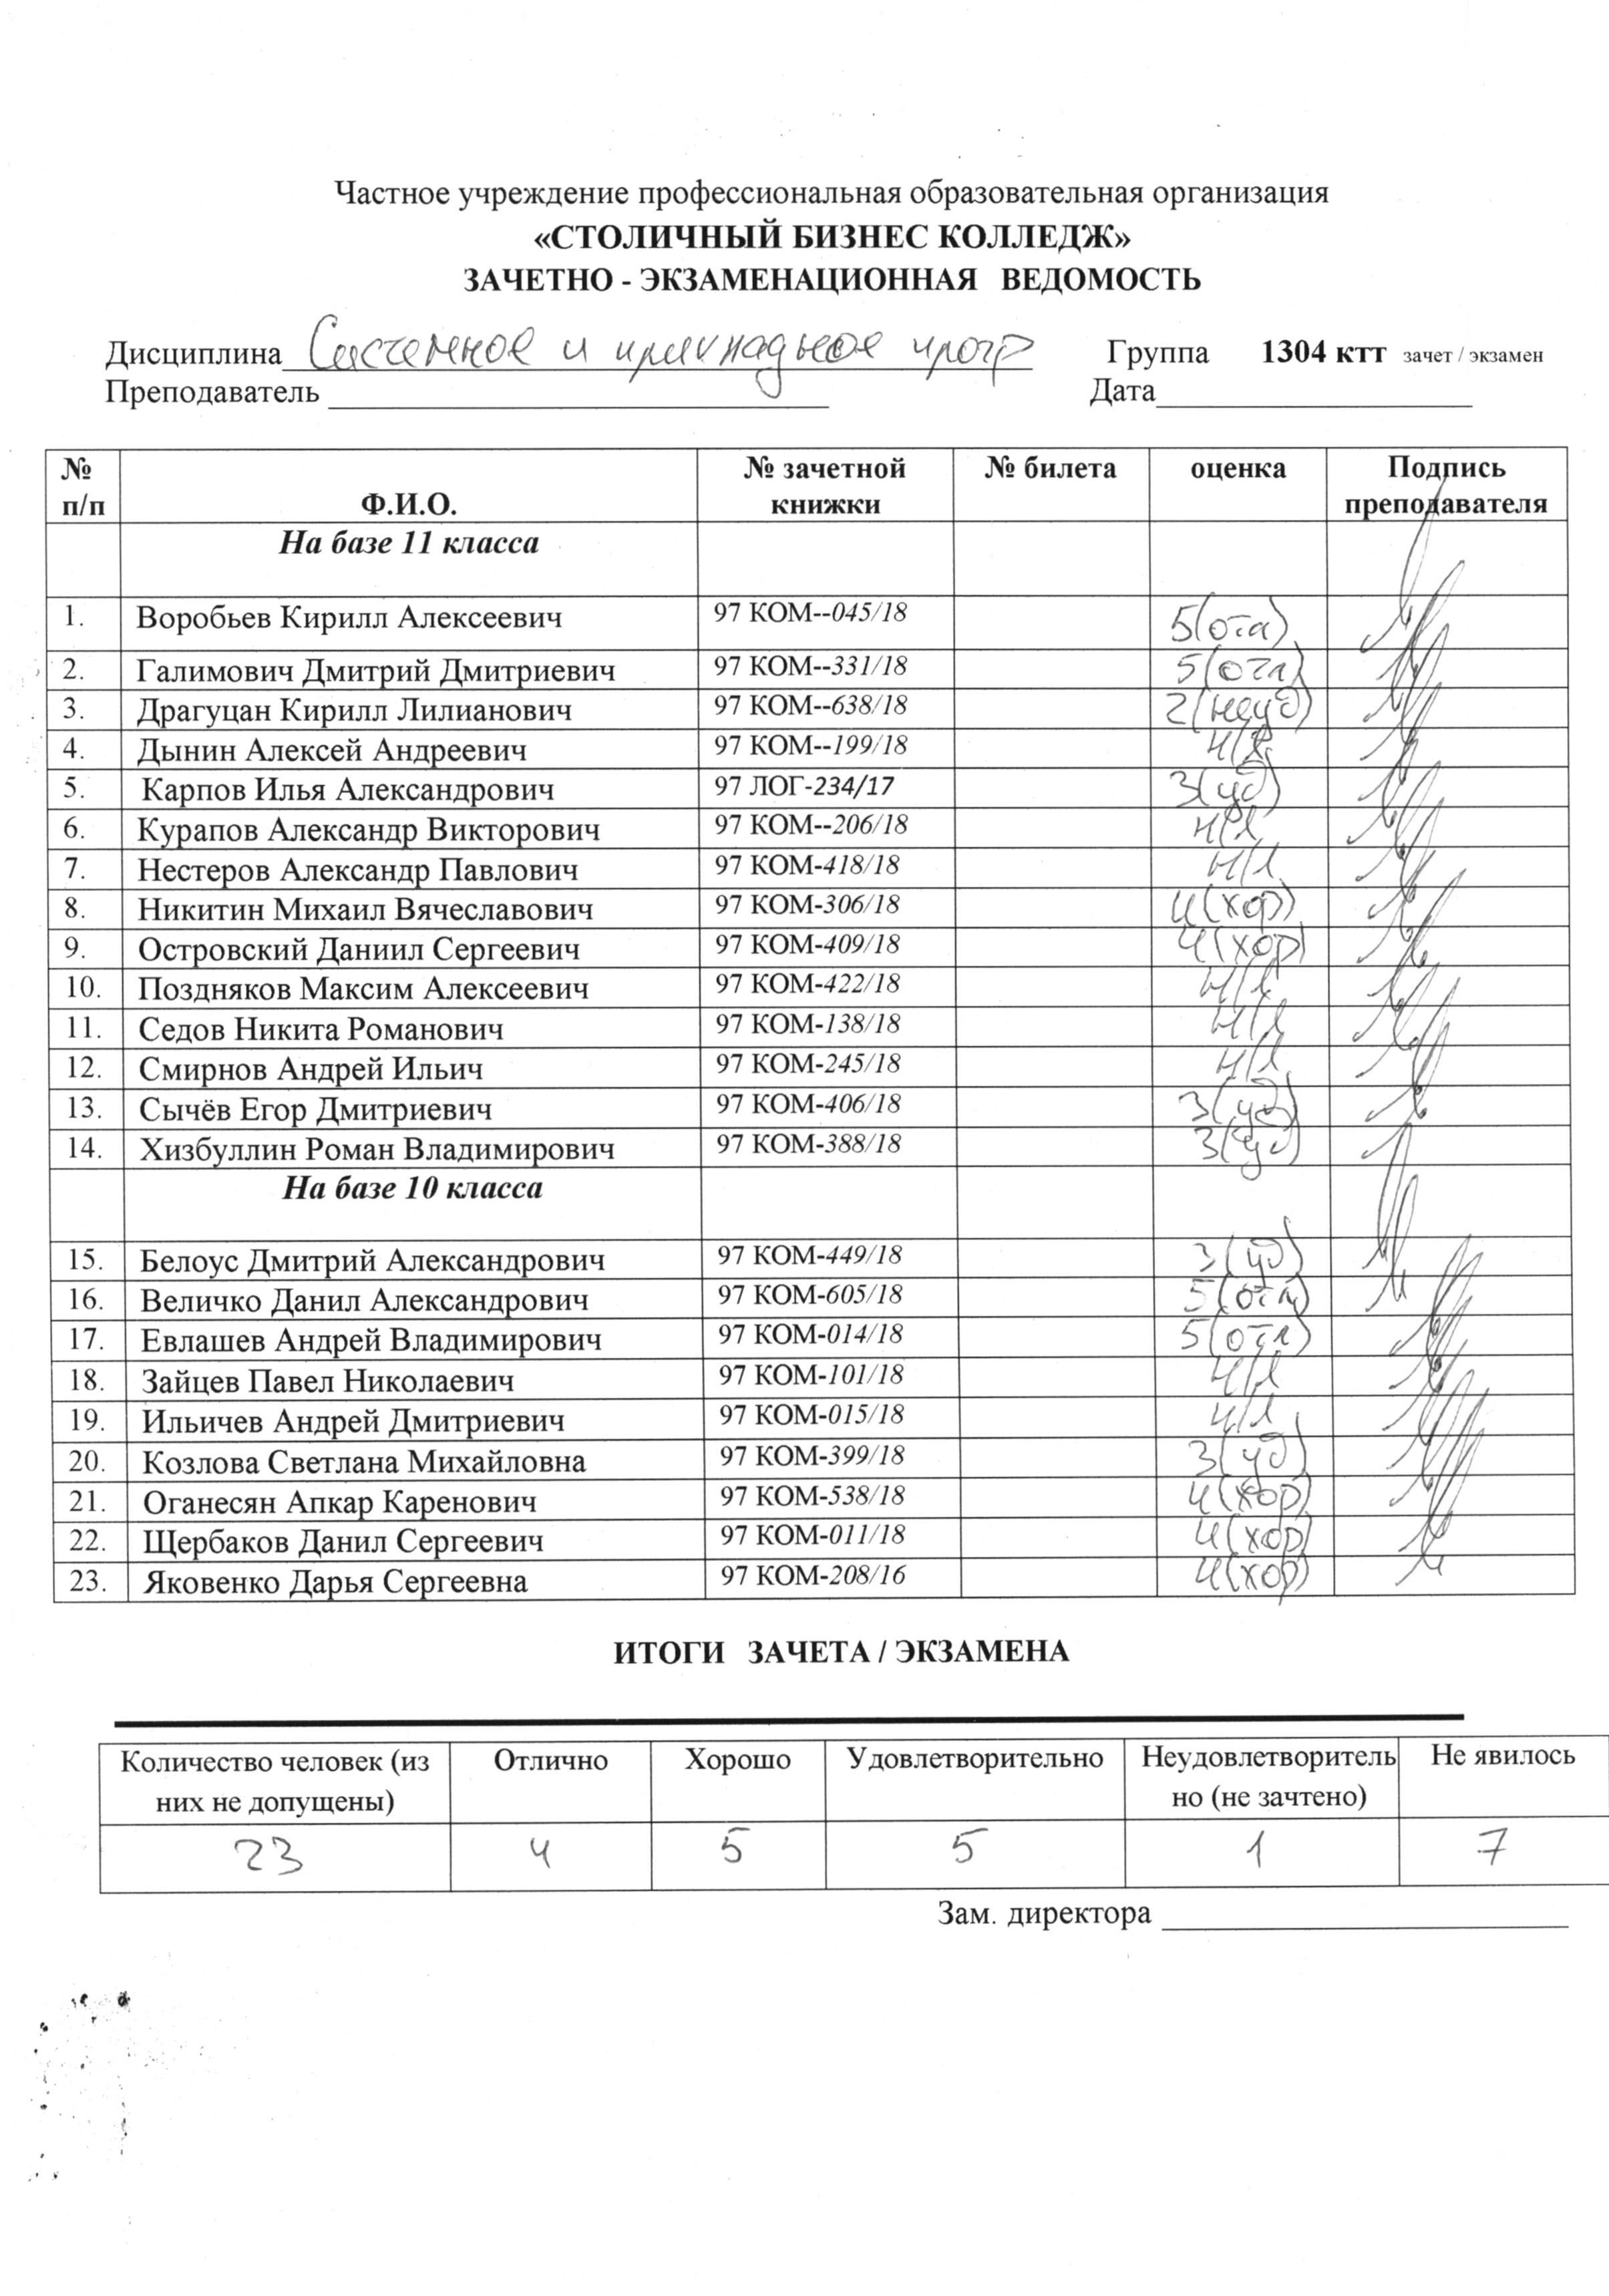 Частное учреждение профессиональная образовательная организация
«СТОЛИЧНЫЙ БИЗНЕС КОЛЛЕДЖ»
ЗАЧЕТНО - ЭКЗАМЕНАЦИОННАЯ ВЕДОМОСТЬ
Дисциплина Системное и прикладное прогр Группа 1304 ктт зачет / экзамен
Преподаватель Дата
№ п/п Ф.И.О. № зачетной книжки № билета оценка Подпись преподавателя
На базе 11 класса
1. Воробьев Кирилл Алексеевич 97 КОМ--045/18 5(отл)
2. Галимович Дмитрий Дмитриевич 97 КОМ--331/18 5(отл)
3. Драгуцан Кирилл Лилианович 97 КОМ--638/18 2(неуд)
4. Дынин Алексей Андреевич 97 КОМ--199/18 н/я
5. Карпов Илья Александрович 97 ЛОГ-234/17 3(уд)
6. Курапов Александр Викторович 97 КОМ--206/18 н/я
7. Нестеров Александр Павлович 97 КОМ-418/18 н/я
8. Никитин Михаил Вячеславович 97 КОМ-306/18 4(хор)
9. Островский Даниил Сергеевич 97 КОМ-409/18 4(хор)
10. Поздняков Максим Алексеевич 97 КОМ-422/18 н/я
11. Седов Никита Романович 97 КОМ-138/18 н/я
12. Смирнов Андрей Ильич 97 КОМ-245/18 н/я
13. Сычёв Егор Дмитриевич 97 КОМ-406/18 3(уд)
14. Хизбуллин Роман Владимирович 97 КОМ-388/18 3(уд)
На базе 10 класса
15. Белоус Дмитрий Александрович 97 КОМ-449/18 3(уд)
16. Величко Данил Александрович 97 КОМ-605/18 5(отл)
17. Евлашев Андрей Владимирович 97 КОМ-014/18 5(отл)
18. Зайцев Павел Николаевич 97 КОМ-101/18 н/я
19. Ильичев Андрей Дмитриевич 97 КОМ-015/18 н/я
20. Козлова Светлана Михайловна 97 КОМ-399/18 3(уд)
21. Оганесян Апкар Каренович 97 КОМ-538/18 4(хор)
22. Щербаков Данил Сергеевич 97 КОМ-011/18 4(хор)
23. Яковенко Дарья Сергеевна 97 КОМ-208/16 4(хор)
ИТОГИ ЗАЧЕТА / ЭКЗАМЕНА
Количество человек (из них не допущены) Отлично Хорошо Удовлетворительно Неудовлетворитель но (не зачтено) Не явилось
23 4 5 5 1 7
Зам. директора